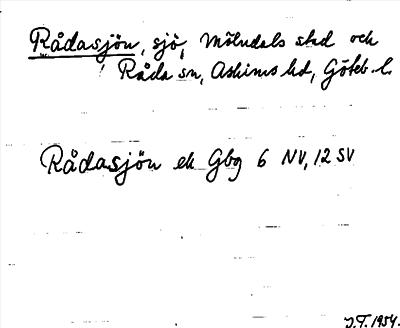 Rådasjön, sjö, Mölndals stad och
Råda sn, Askims hd, Göteb. l.
Rådasjön ek Gbg 6 NV, 12 SV
J.T. 1954.